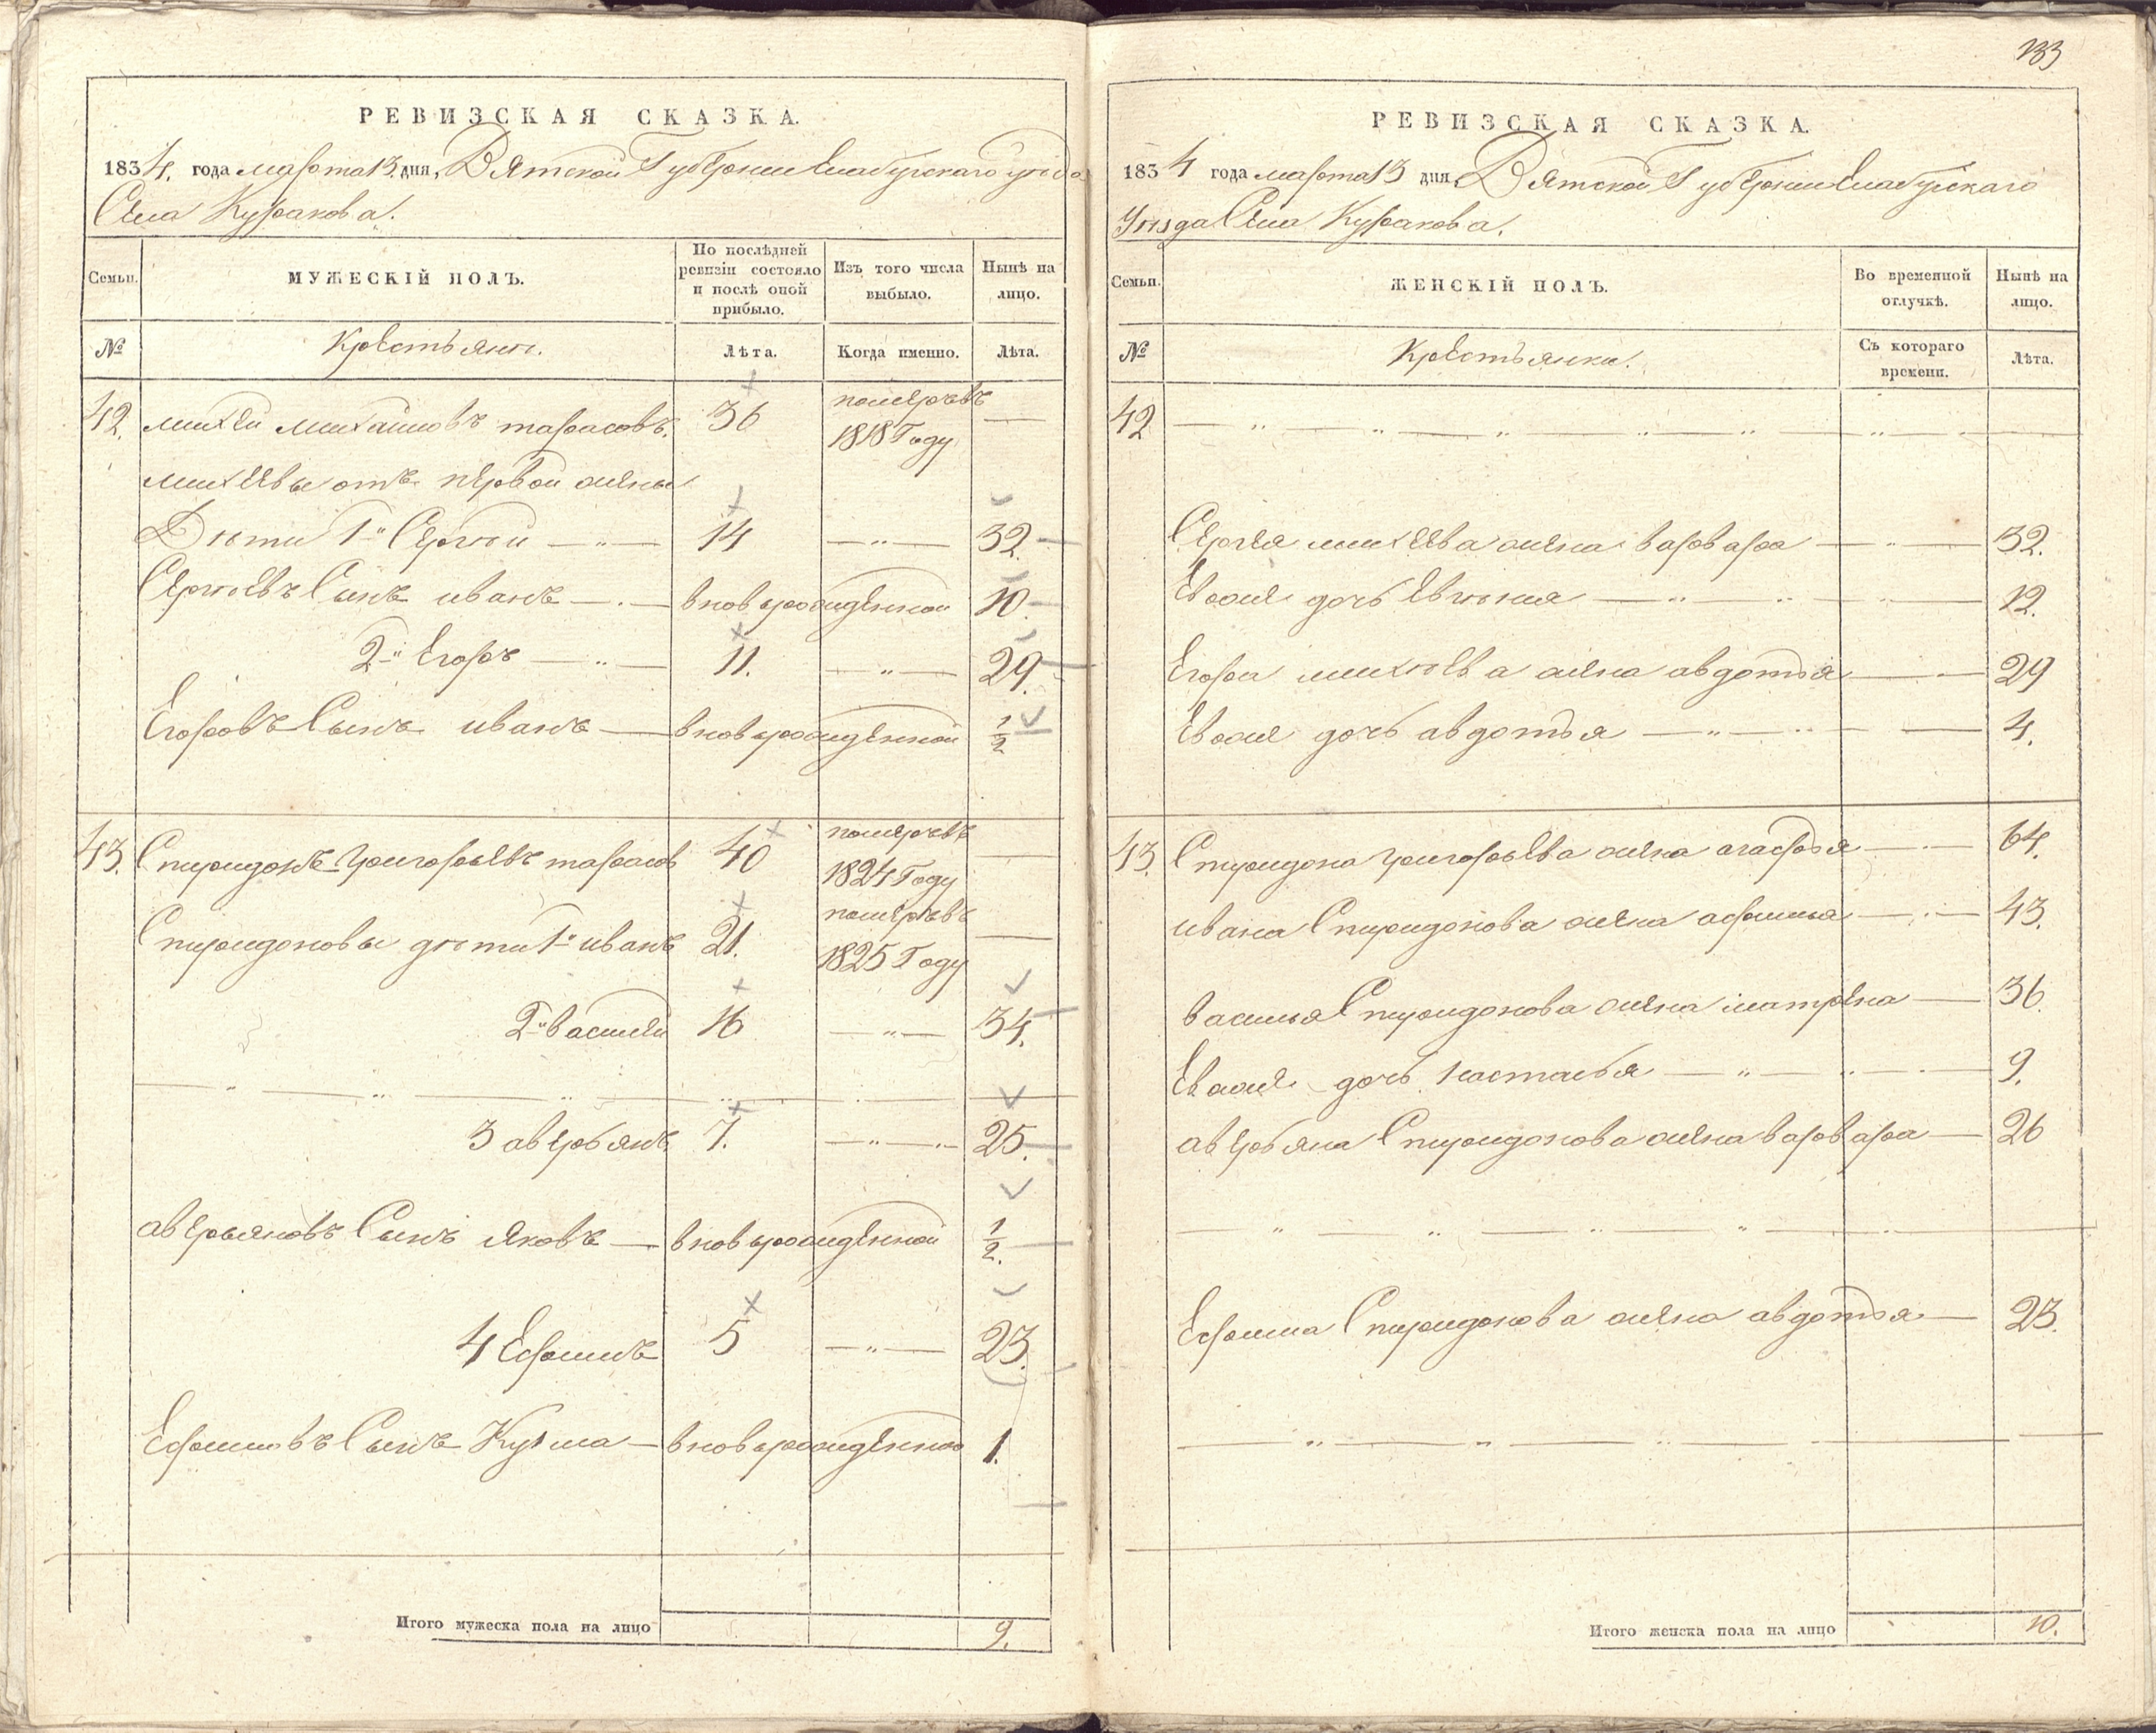 133
РЕВИЗСКАЯ СКАЗКА.
1834. года марта 13. дня, Вятской Губернии Елабугскаго уезда
Села Куракова.
Семьи.
МУЖЕСКІЙ ПОЛЪ.
По послѣдней ревизіи состояло и послѣ оной прибыло.
Изъ того числа выбыло.
Нынѣ на лицо.
№
Крестьяне.
Лѣта.
Когда именно.
Лѣта.
42. михей михайловъ тарасовъ. 36 померъ въ 1818 Году —
михеевы отъ первой жены
Дѣти 1й Сергѣй — 14 — 32.
Сергѣевъ Сынъ иванъ — вновьрожденной 10
2й Егоръ — 11. — 29.
Егоровъ Сынъ иванъ — вновьрожденной 1/2
43. Спиридонъ григорьевъ тарасов 40 померъ въ 1824 Году —
Спиридоновы дѣти 1й иванъ 21. померъ въ 1825 Году —
2й василей 16 — 34.
3 аверьянъ 7. — 25.
аверьяновъ Сынъ яковъ — вновьрожденной 1/2.
4 Ефимъ 5 — 23.
Ефимовъ Сынъ Кузма — вновьрожденной 1.
Итого мужеска пола на лицо 9.
РЕВИЗСКАЯ СКАЗКА.
1834 года марта 13 дня Вятской Губернии Елабугскаго
Уѣзда Села Куракова.
Семьи.
ЖЕНСКІЙ ПОЛЪ.
Во временной отлучкѣ.
Нынѣ на лицо.
№
Крестьянки.
Съ котораго времени.
Лѣта.
42
Сергея михеева жена варвара — 32.
Евоже дочь Евгения — 12.
Егора михѣева жена авдотья — 29
Евоже дочь авдотья — 4.
43. Спиридона григорьева жена агафья — 64.
ивана Спиридонова жена афимья — 43.
василья Спиридонова жена матрена — 36.
Евоже дочь настасья — 9.
аверьяна Спиридонова жена варвара — 26
Ефима Спиридонова жена авдотья — 23.
Итого женска пола на лицо 10.